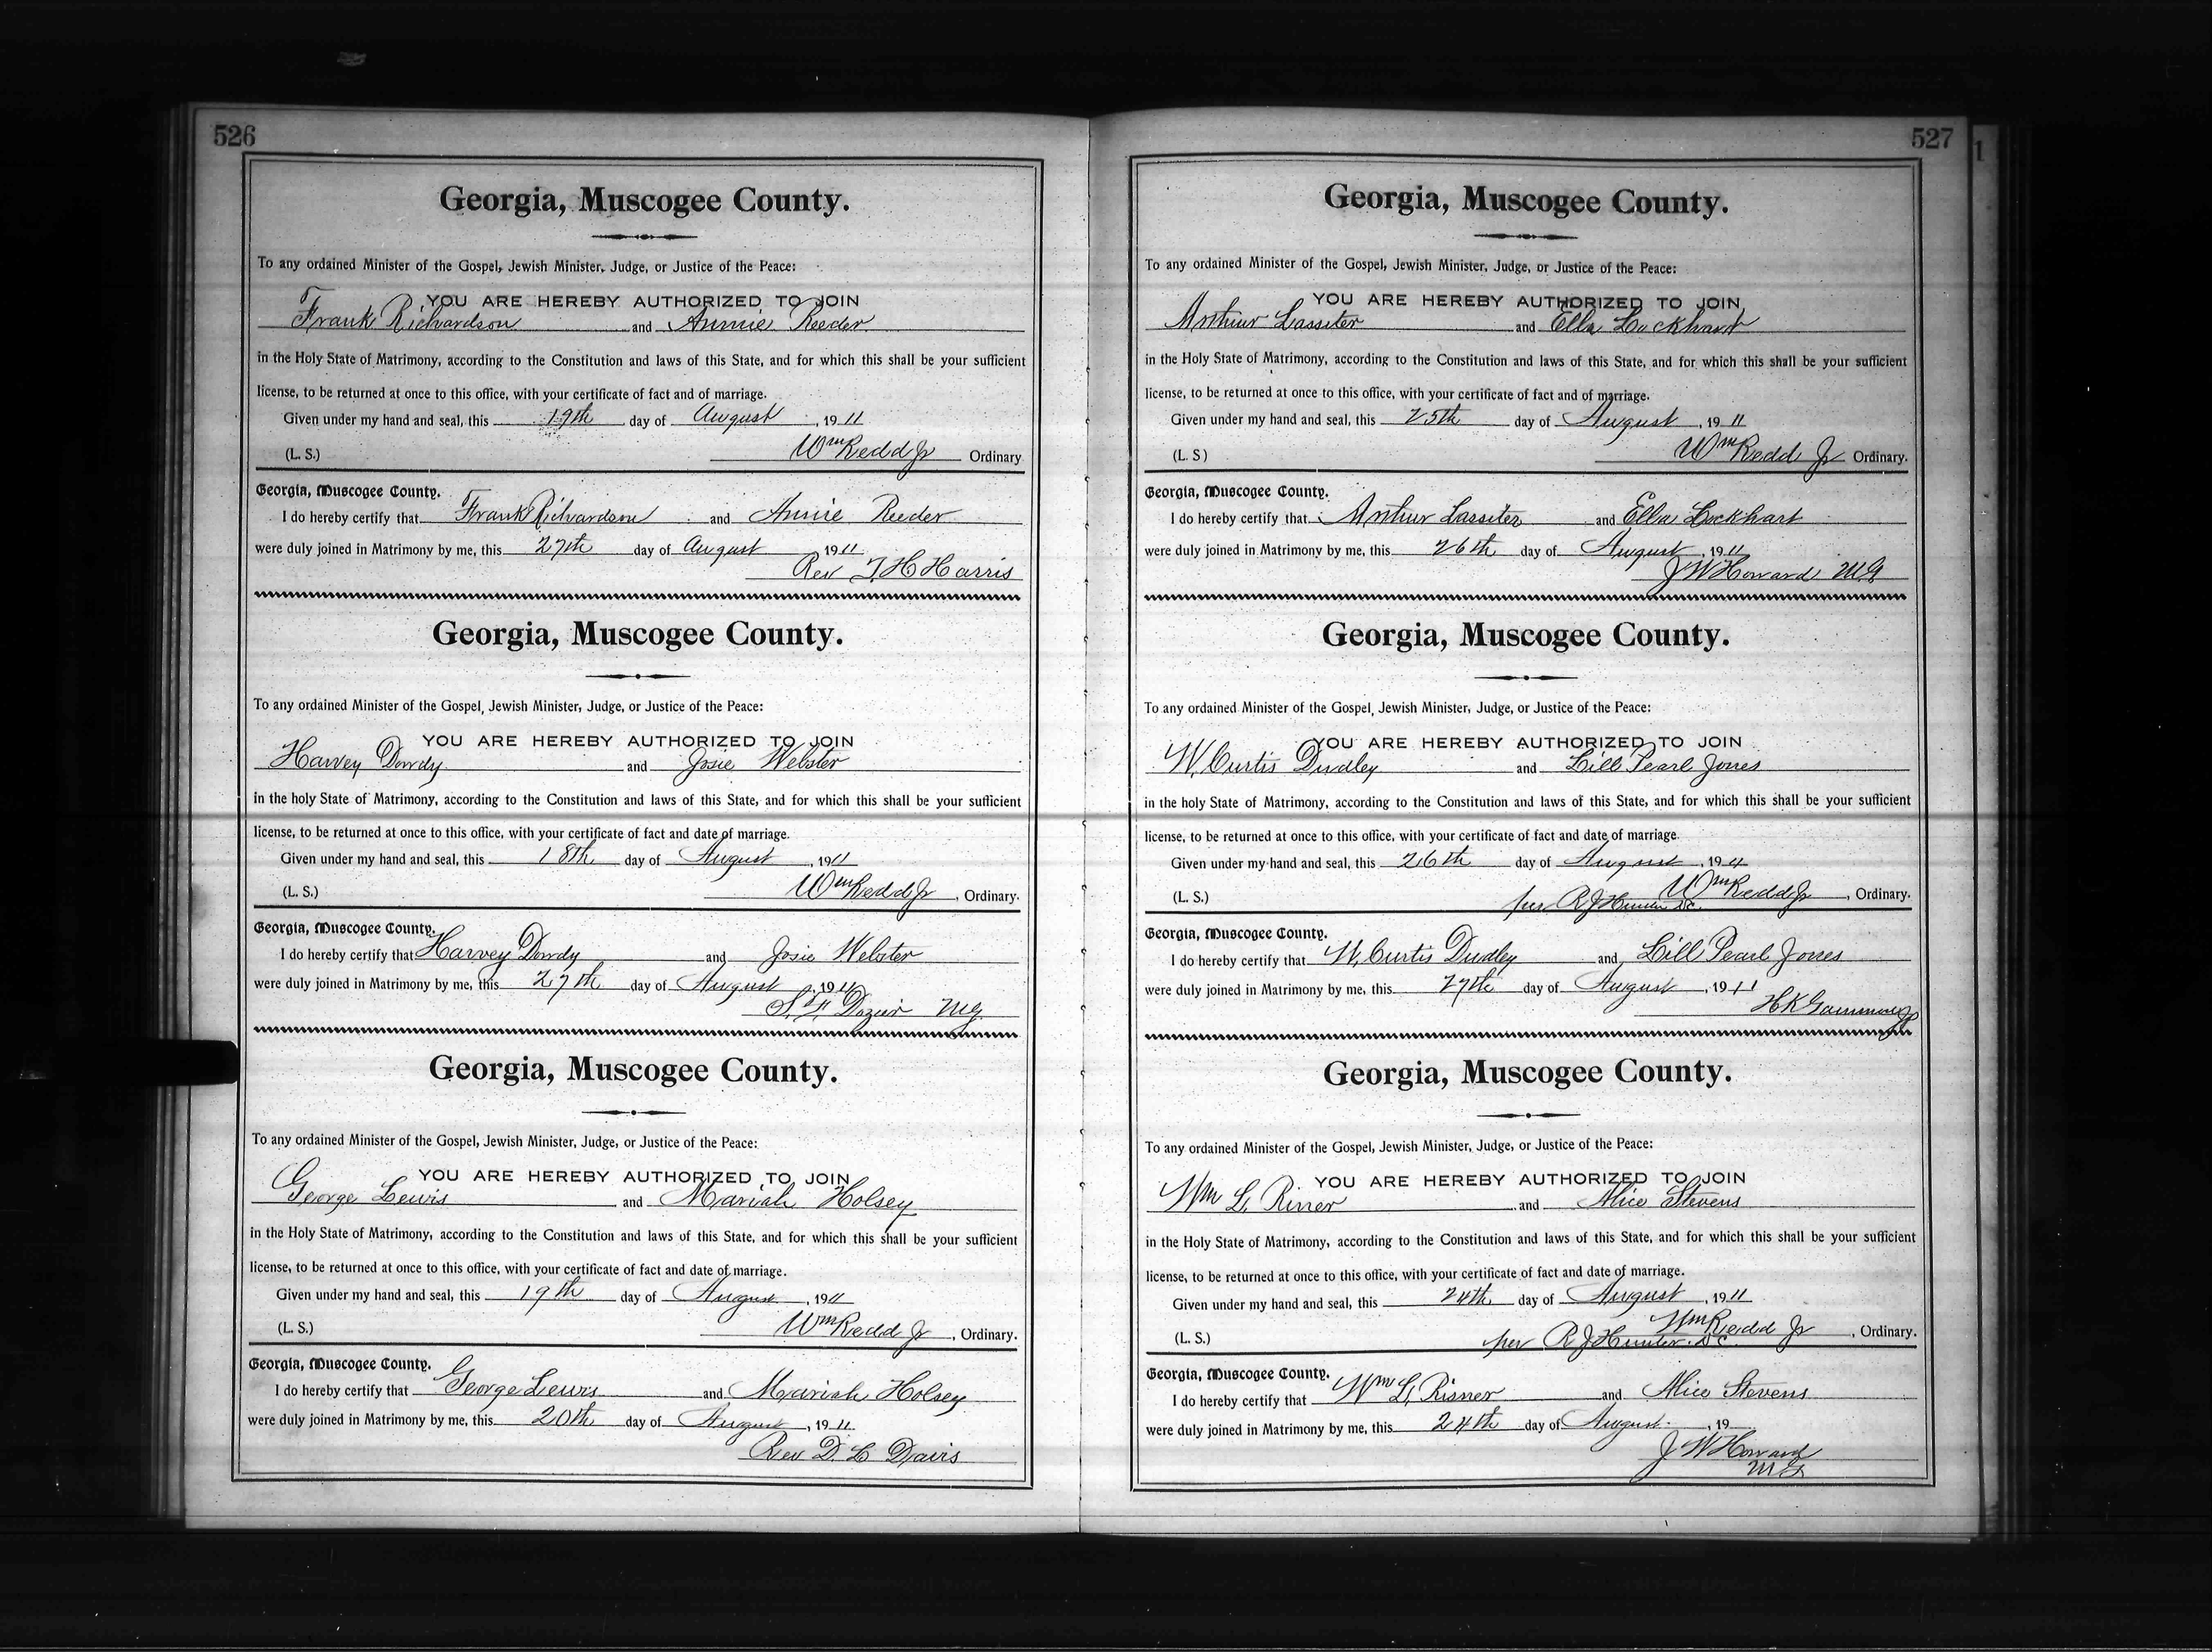 526
Georgia, Muscogee County.
To any ordained Minister of the Gospel, Jewish Minister, Judge, or Justice of the Peace:
YOU ARE HEREBY AUTHORIZED TO JOIN
Frank Richardson and Annie Reeder
in the Holy State of Matrimony, according to the Constitution and laws of this State, and for which this shall be your sufficient
license, to be returned at once to this office, with your certificate of fact and of marriage.
Given under my hand and seal, this 19th day of August, 1911
(L. S.) Wm Redd Jr Ordinary
Georgia, Muscogee County.
I do hereby certify that Frank Richardson and Annie Reeder
were duly joined in Matrimony by me, this 27th day of August, 1911
Rev T. H Harris
Georgia, Muscogee County.
To any ordained Minister of the Gospel, Jewish Minister, Judge, or Justice of the Peace:
YOU ARE HEREBY AUTHORIZED TO JOIN
Harvey Dowdy and Josie Webster
in the holy State of Matrimony, according to the Constitution and laws of this State, and for which this shall be your sufficient
license, to be returned at once to this office, with your certificate of fact and date of marriage.
Given under my hand and seal, this 18th day of August, 1911
(L. S.) Wm Redd Jr, Ordinary.
Georgia, Muscogee County.
I do hereby certify that Harvey Dowdy and Josie Webster
were duly joined in Matrimony by me, this 27th day of August, 1911
S. F. Dozier M.G.
Georgia, Muscogee County.
To any ordained Minister of the Gospel, Jewish Minister, Judge, or Justice of the Peace:
YOU ARE HEREBY AUTHORIZED TO JOIN
George Lewis and Mariah Holsey
in the Holy State of Matrimony, according to the Constitution and laws of this State, and for which this shall be your sufficient
license, to be returned at once to this office, with your certificate of fact and date of marriage.
Given under my hand and seal, this 19th day of August, 1911
(L. S.) Wm Redd Jr, Ordinary.
Georgia, Muscogee County.
I do hereby certify that George Lewis and Mariah Holsey
were duly joined in Matrimony by me, this 20th day of August, 1911.
Rev D. L Davis
527
Georgia, Muscogee County.
To any ordained Minister of the Gospel, Jewish Minister, Judge, or Justice of the Peace:
YOU ARE HEREBY AUTHORIZED TO JOIN
Arthur Lassiter and Ella Lockhart
in the Holy State of Matrimony, according to the Constitution and laws of this State, and for which this shall be your sufficient
license, to be returned at once to this office, with your certificate of fact and of marriage.
Given under my hand and seal, this 25th day of August, 1911
(L. S) Wm Redd Jr Ordinary.
Georgia, Muscogee County.
I do hereby certify that Arthur Lassiter and Ella Lockhart
were duly joined in Matrimony by me, this 26th day of August, 1911
J W Howard M.G.
Georgia, Muscogee County.
To any ordained Minister of the Gospel, Jewish Minister, Judge, or Justice of the Peace:
YOU ARE HEREBY AUTHORIZED TO JOIN
W. Curtis Dudley and Lill Pearl Jones
in the holy State of Matrimony, according to the Constitution and laws of this State, and for which this shall be your sufficient
license, to be returned at once to this office, with your certificate of fact and date of marriage.
Given under my hand and seal, this 26th day of August, 1911
(L. S.) Wm Redd Jr, Ordinary.
per R J Hunter D.C.
Georgia, Muscogee County.
I do hereby certify that W. Curtis Dudley and Lill Pearl Jones
were duly joined in Matrimony by me, this 27th day of August, 1911
H K Gammon
Georgia, Muscogee County.
To any ordained Minister of the Gospel, Jewish Minister, Judge, or Justice of the Peace:
YOU ARE HEREBY AUTHORIZED TO JOIN
Wm L. Risner and Alice Stevens
in the Holy State of Matrimony, according to the Constitution and laws of this State, and for which this shall be your sufficient
license, to be returned at once to this office, with your certificate of fact and date of marriage.
Given under my hand and seal, this 24th day of August, 1911
(L. S.) Wm Redd Jr, Ordinary.
per R J Hunter D.C.
Georgia, Muscogee County.
I do hereby certify that Wm L. Risner and Alice Stevens
were duly joined in Matrimony by me, this 24th day of August, 19
J W Howard
M G